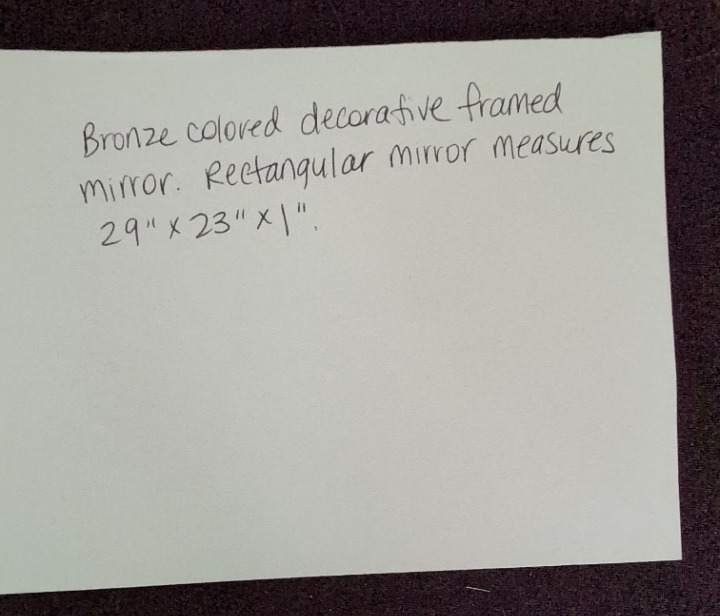 Bronze colored decorative framed
mirror. Rectangular mirror measures
29" x 23" x 1".